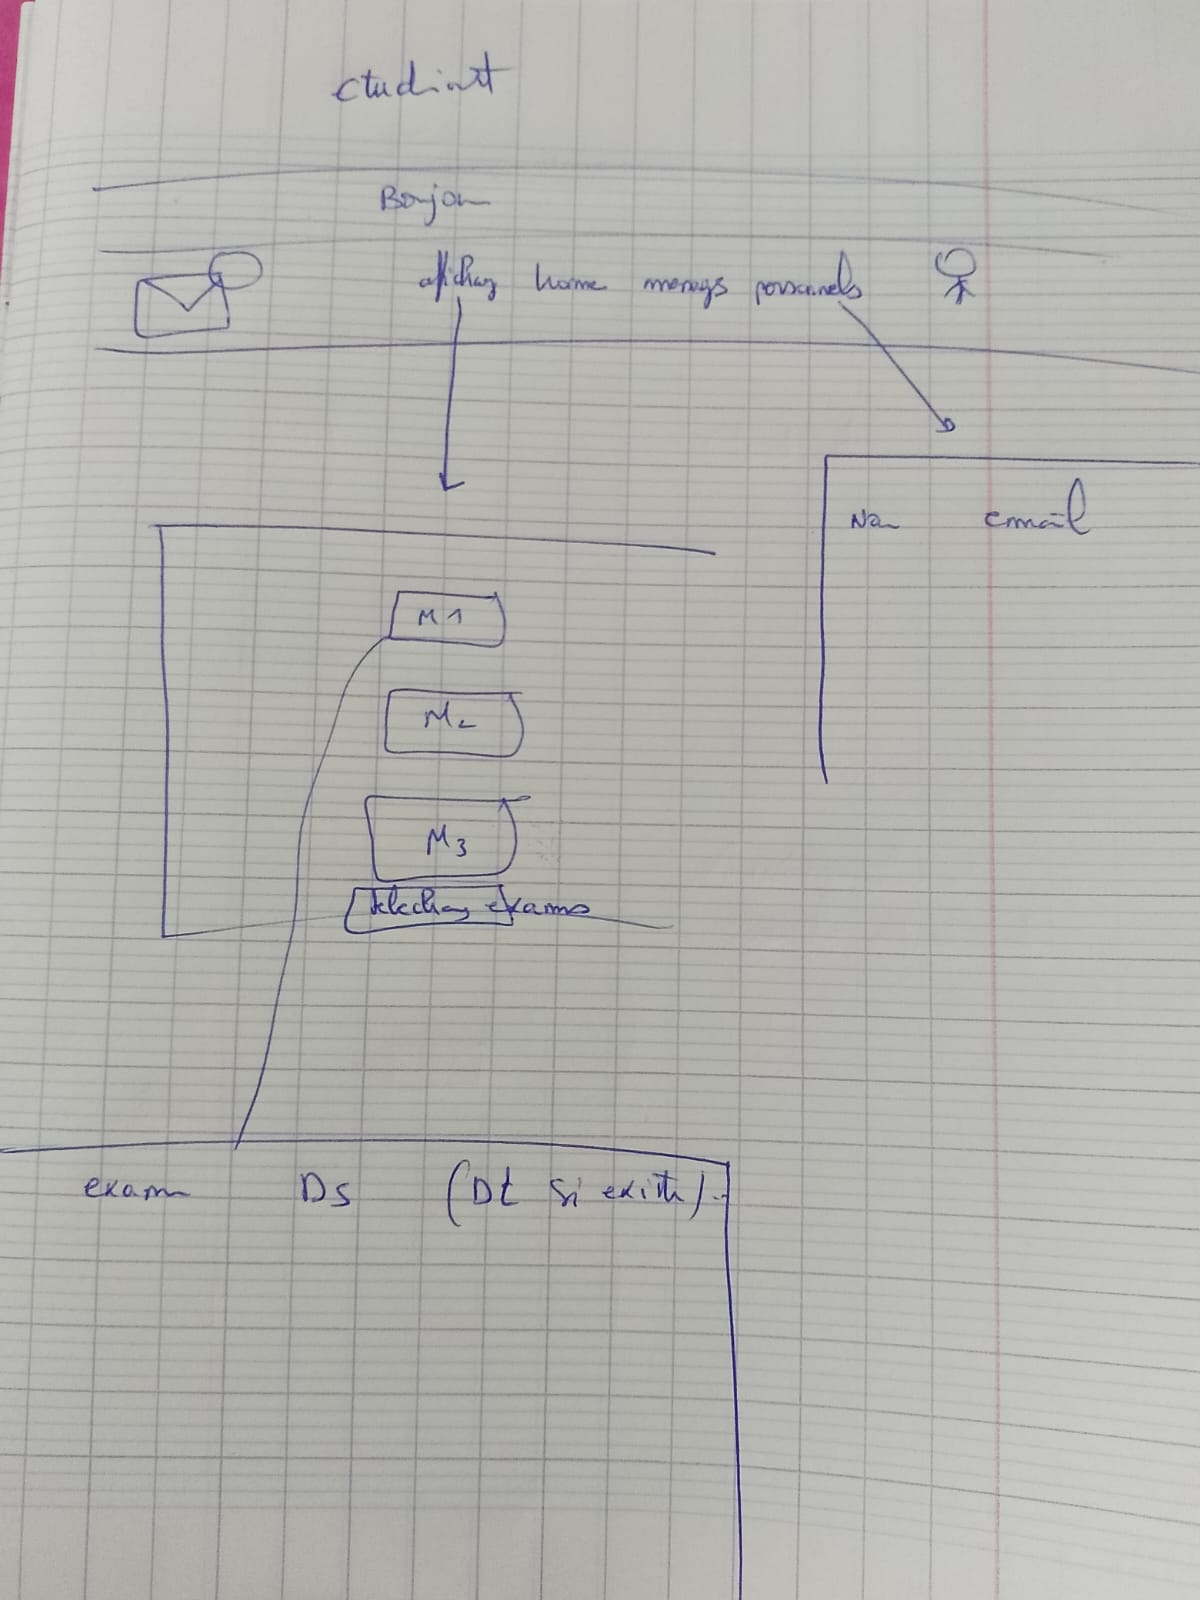 etudiant
Bonjou
affichag home menags personnels
Na email
M1
M2
M3
exams
exam Ds (Dt si existe)